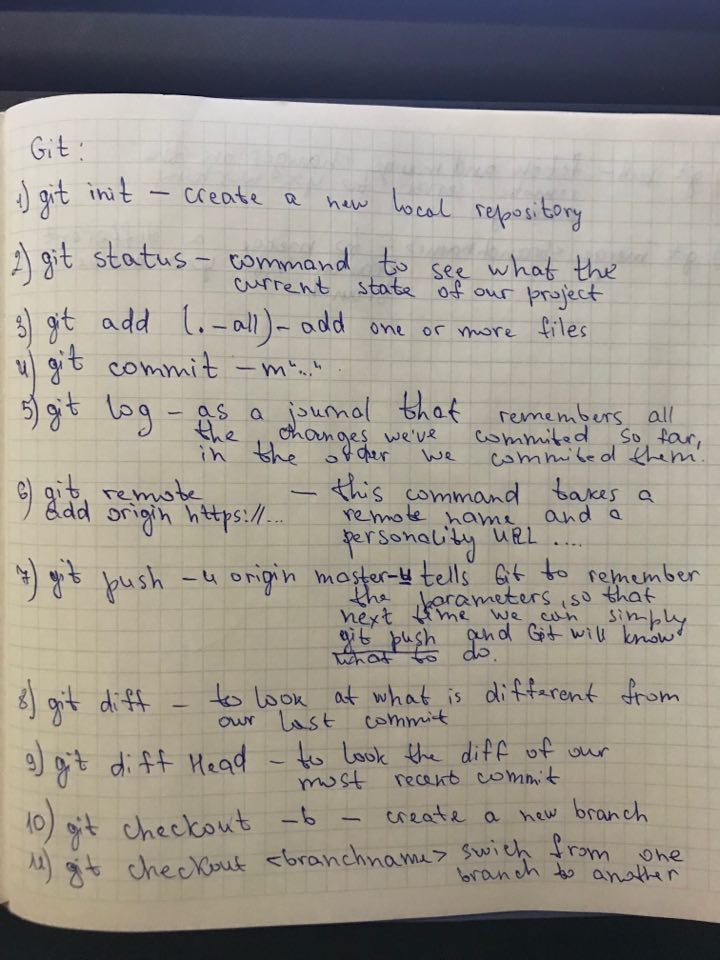 Git:
1) git init – create a new local repository
2) git status – command to see what the
current state of our project
3) git add (. –all) – add one or more files
4) git commit –m"..."
5) git log – as a journal that remembers all
the changes we've commited so far,
in the order we commited them.
6) git remote – this command takes a
add origin https://... remote name and a
personality URL ....
7) git push –u origin master –u tells Git to remember
the parameters, so that
next time we can simply
git push and Git will know
what to do.
8) git diff – to look at what is different from
our last commit
9) git diff Head – to look the diff of our
most recent commit
10) git checkout –b – create a new branch
11) git checkout <branchname> swich from one
branch to another